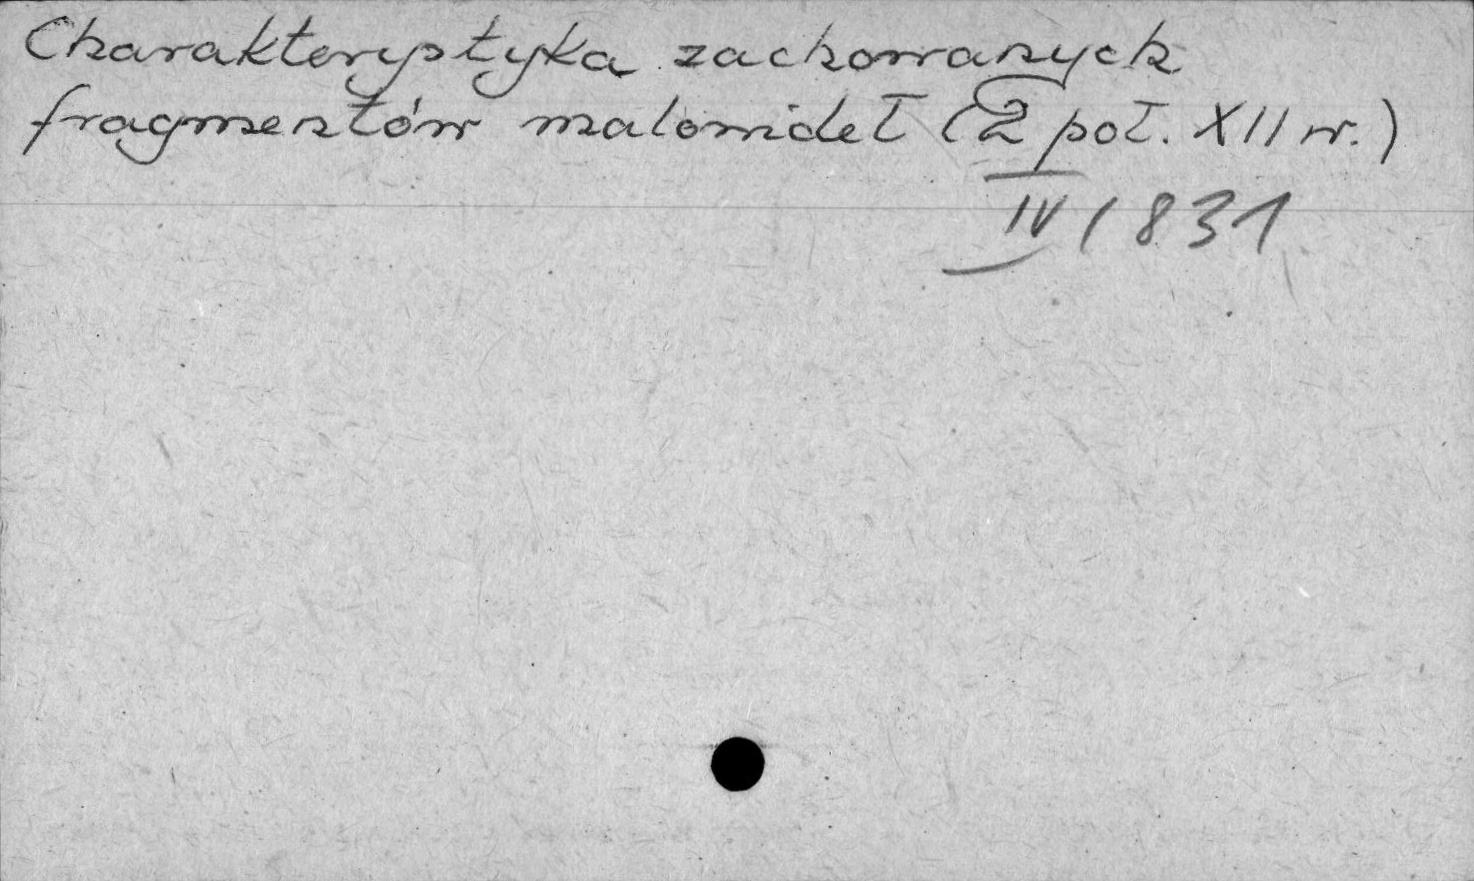 Charakterystyka zachowanych
fragmentów malowideł (2 poł. XII w.)
IV/831